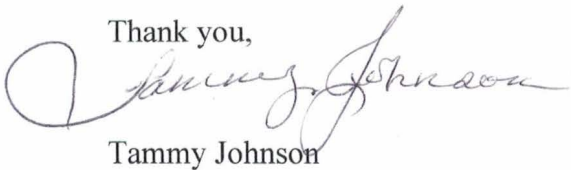 Thank you,
Tammy Johnson
Tammy Johnson